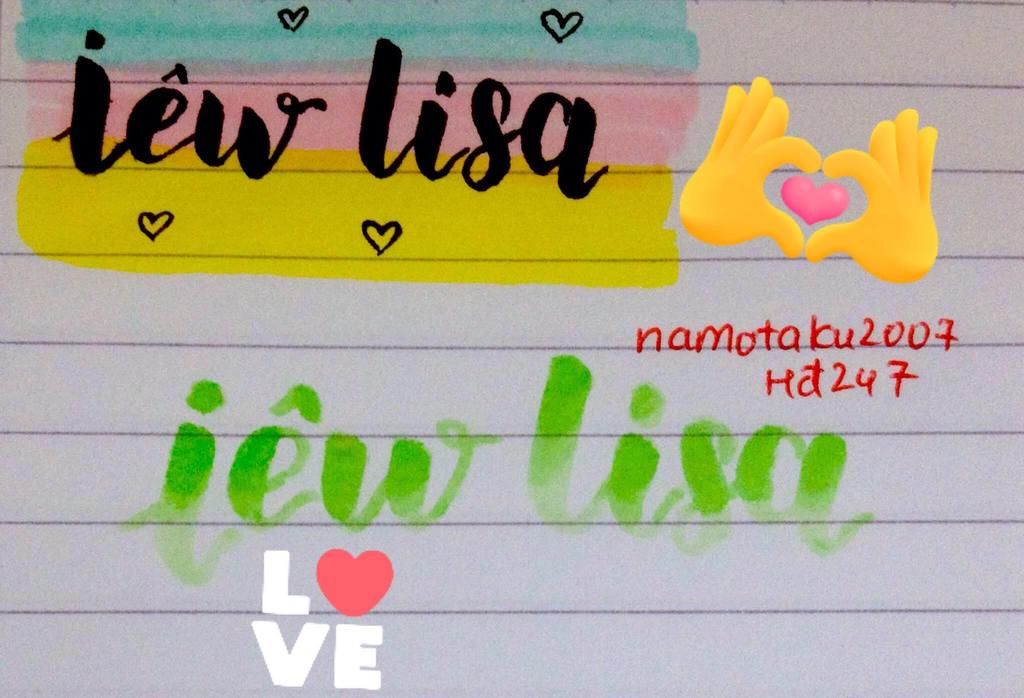 iêw lisa
namotaku2007
Hđ247
iêw lisa
L❤VE